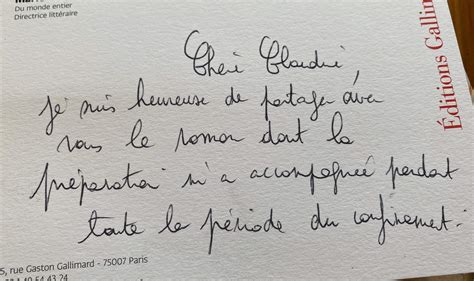 Du monde entier
Directrice littéraire
Éditions Gallim
je suis heureuse de partager avec
vous le roman dont la
préparation m'a accompagnée pendant
toute la période du confinement.
5, rue Gaston Gallimard - 75007 Paris